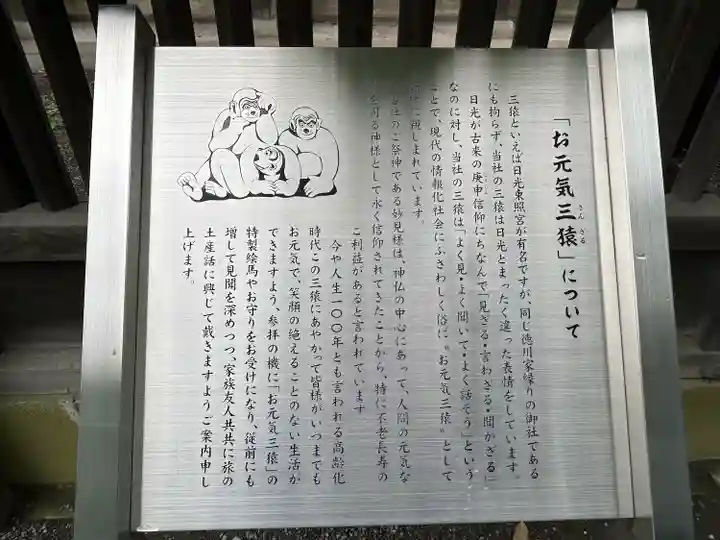 「お元気三猿」について
さんざる
三猿といえば日光東照宮が有名ですが、同じ徳川家縁りの御社である
にも拘らず、当社の三猿は日光とまったく違った表情をしています。
日光が古来の庚申信仰にちなんで「見ざる・言わざる・聞かざる」
なのに対し、当社の三猿は「よく見・よく聞いて・よく話そう」という
ことで、現代の情報化社会にふさわしく俗に〝お元気三猿〟として
に親しまれています。
当社のご祭神である妙見様は、神仏の中心にあって、人間の元気な
を司る神様として永く信仰されてきたことから、特に不老長寿の
ご利益があると言われています
今や人生一〇〇年とも言われる高齢化
時代この三猿にあやかって皆様がいつまでも
お元気で、笑顔の絶えることのない生活か
できますよう、参拝の機に「お元気三猿」の
特製絵馬やお守りをお受けになり、従前にも
増して見聞を深めつつ、家族友人共共に旅の
土産話に興じて戴きますようご案内申し
上げます。